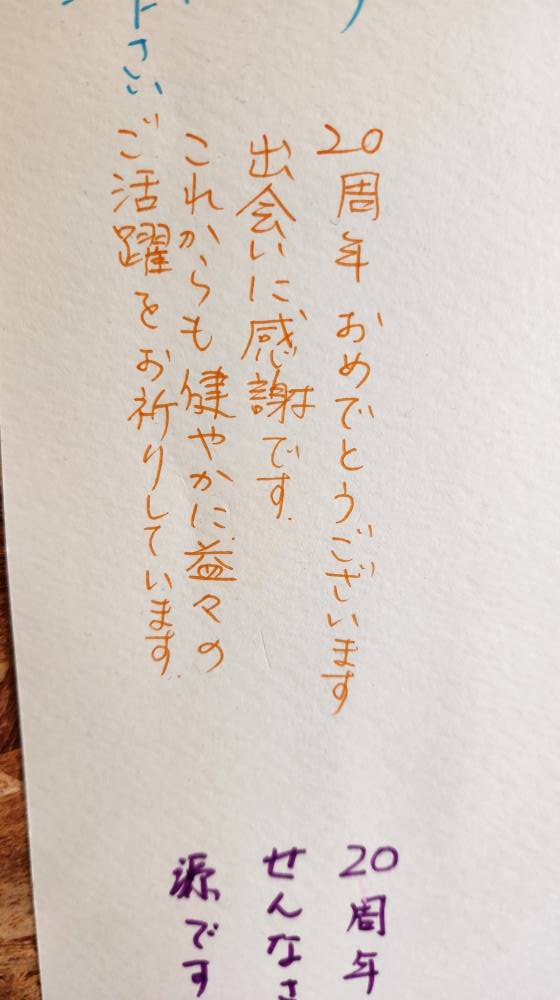 下さい
20周年 おめでとうございます
出会いに感謝です.
これからも健やかに益々の
ご活躍をお祈りしています.
20周年
せんなさ
源です